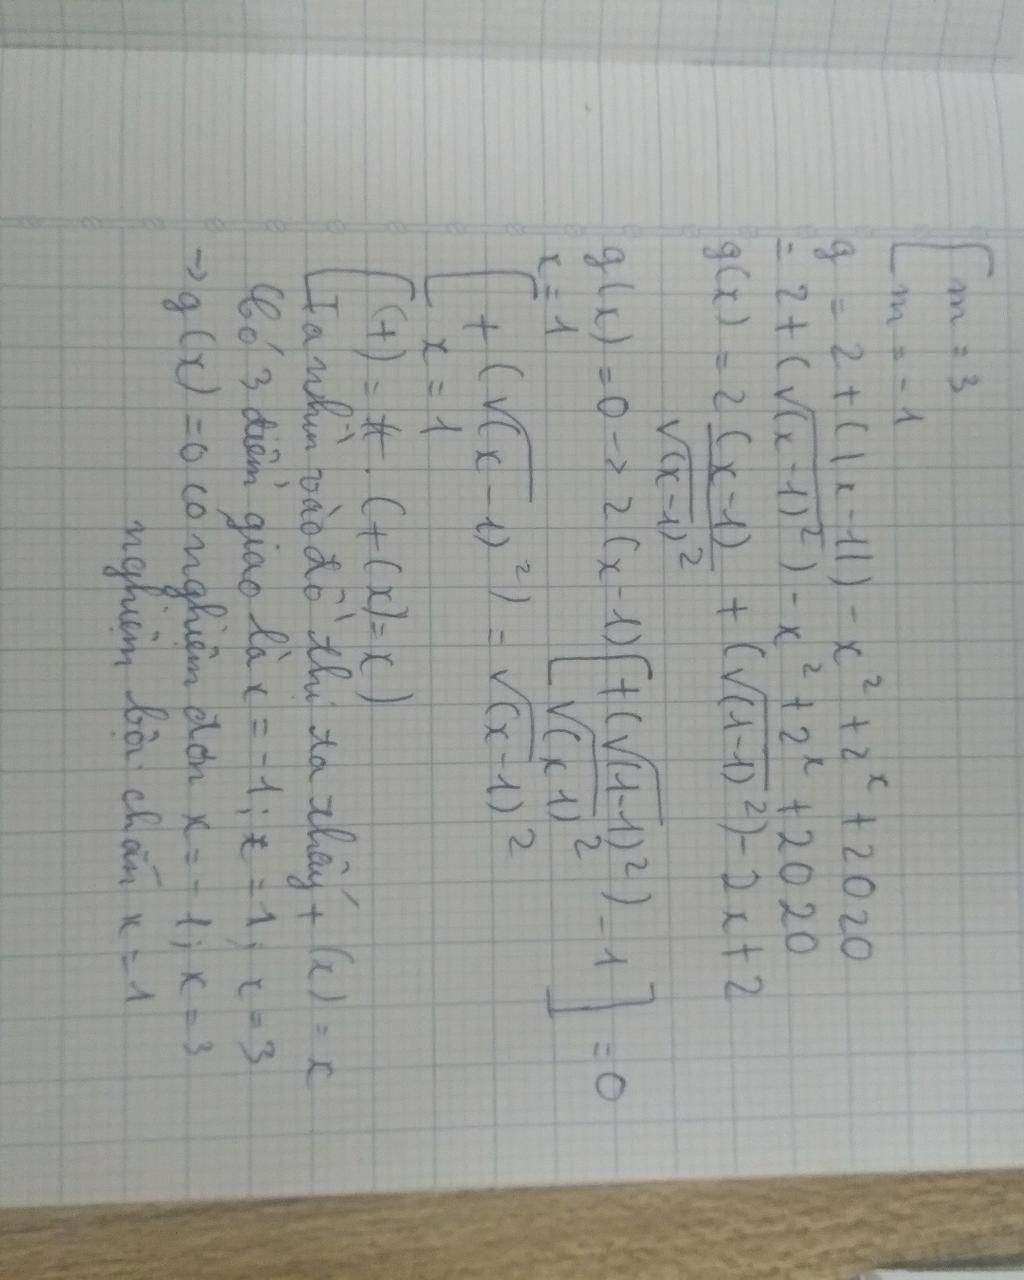 [ m = 3
[ m = -1
g = 2 + (|x-1|) - x² + 2^x + 2020
= 2 + (√(x-1)²) - x² + 2^x + 2020
g(x) = 2 (x-1) / √(x-1)² + (√(1-1)²) - 2x + 2
g(x) = 0 → 2(x-1) [ +(√(1-1)²) / √(x 1)² - 1 ] = 0
x = 1
[ + (√(x-1)²) = √(x-1)²
[ x = 1
[ (+) = t . (+(x) = x)
[ Ta nhìn vào đồ thị ta thấy + (x) = x
Có 3 điểm giao là x = -1; x = 1; x = 3
→ g(x) = 0 có nghiệm đơn x = -1; x = 3
nghiệm bội chẵn x = 1